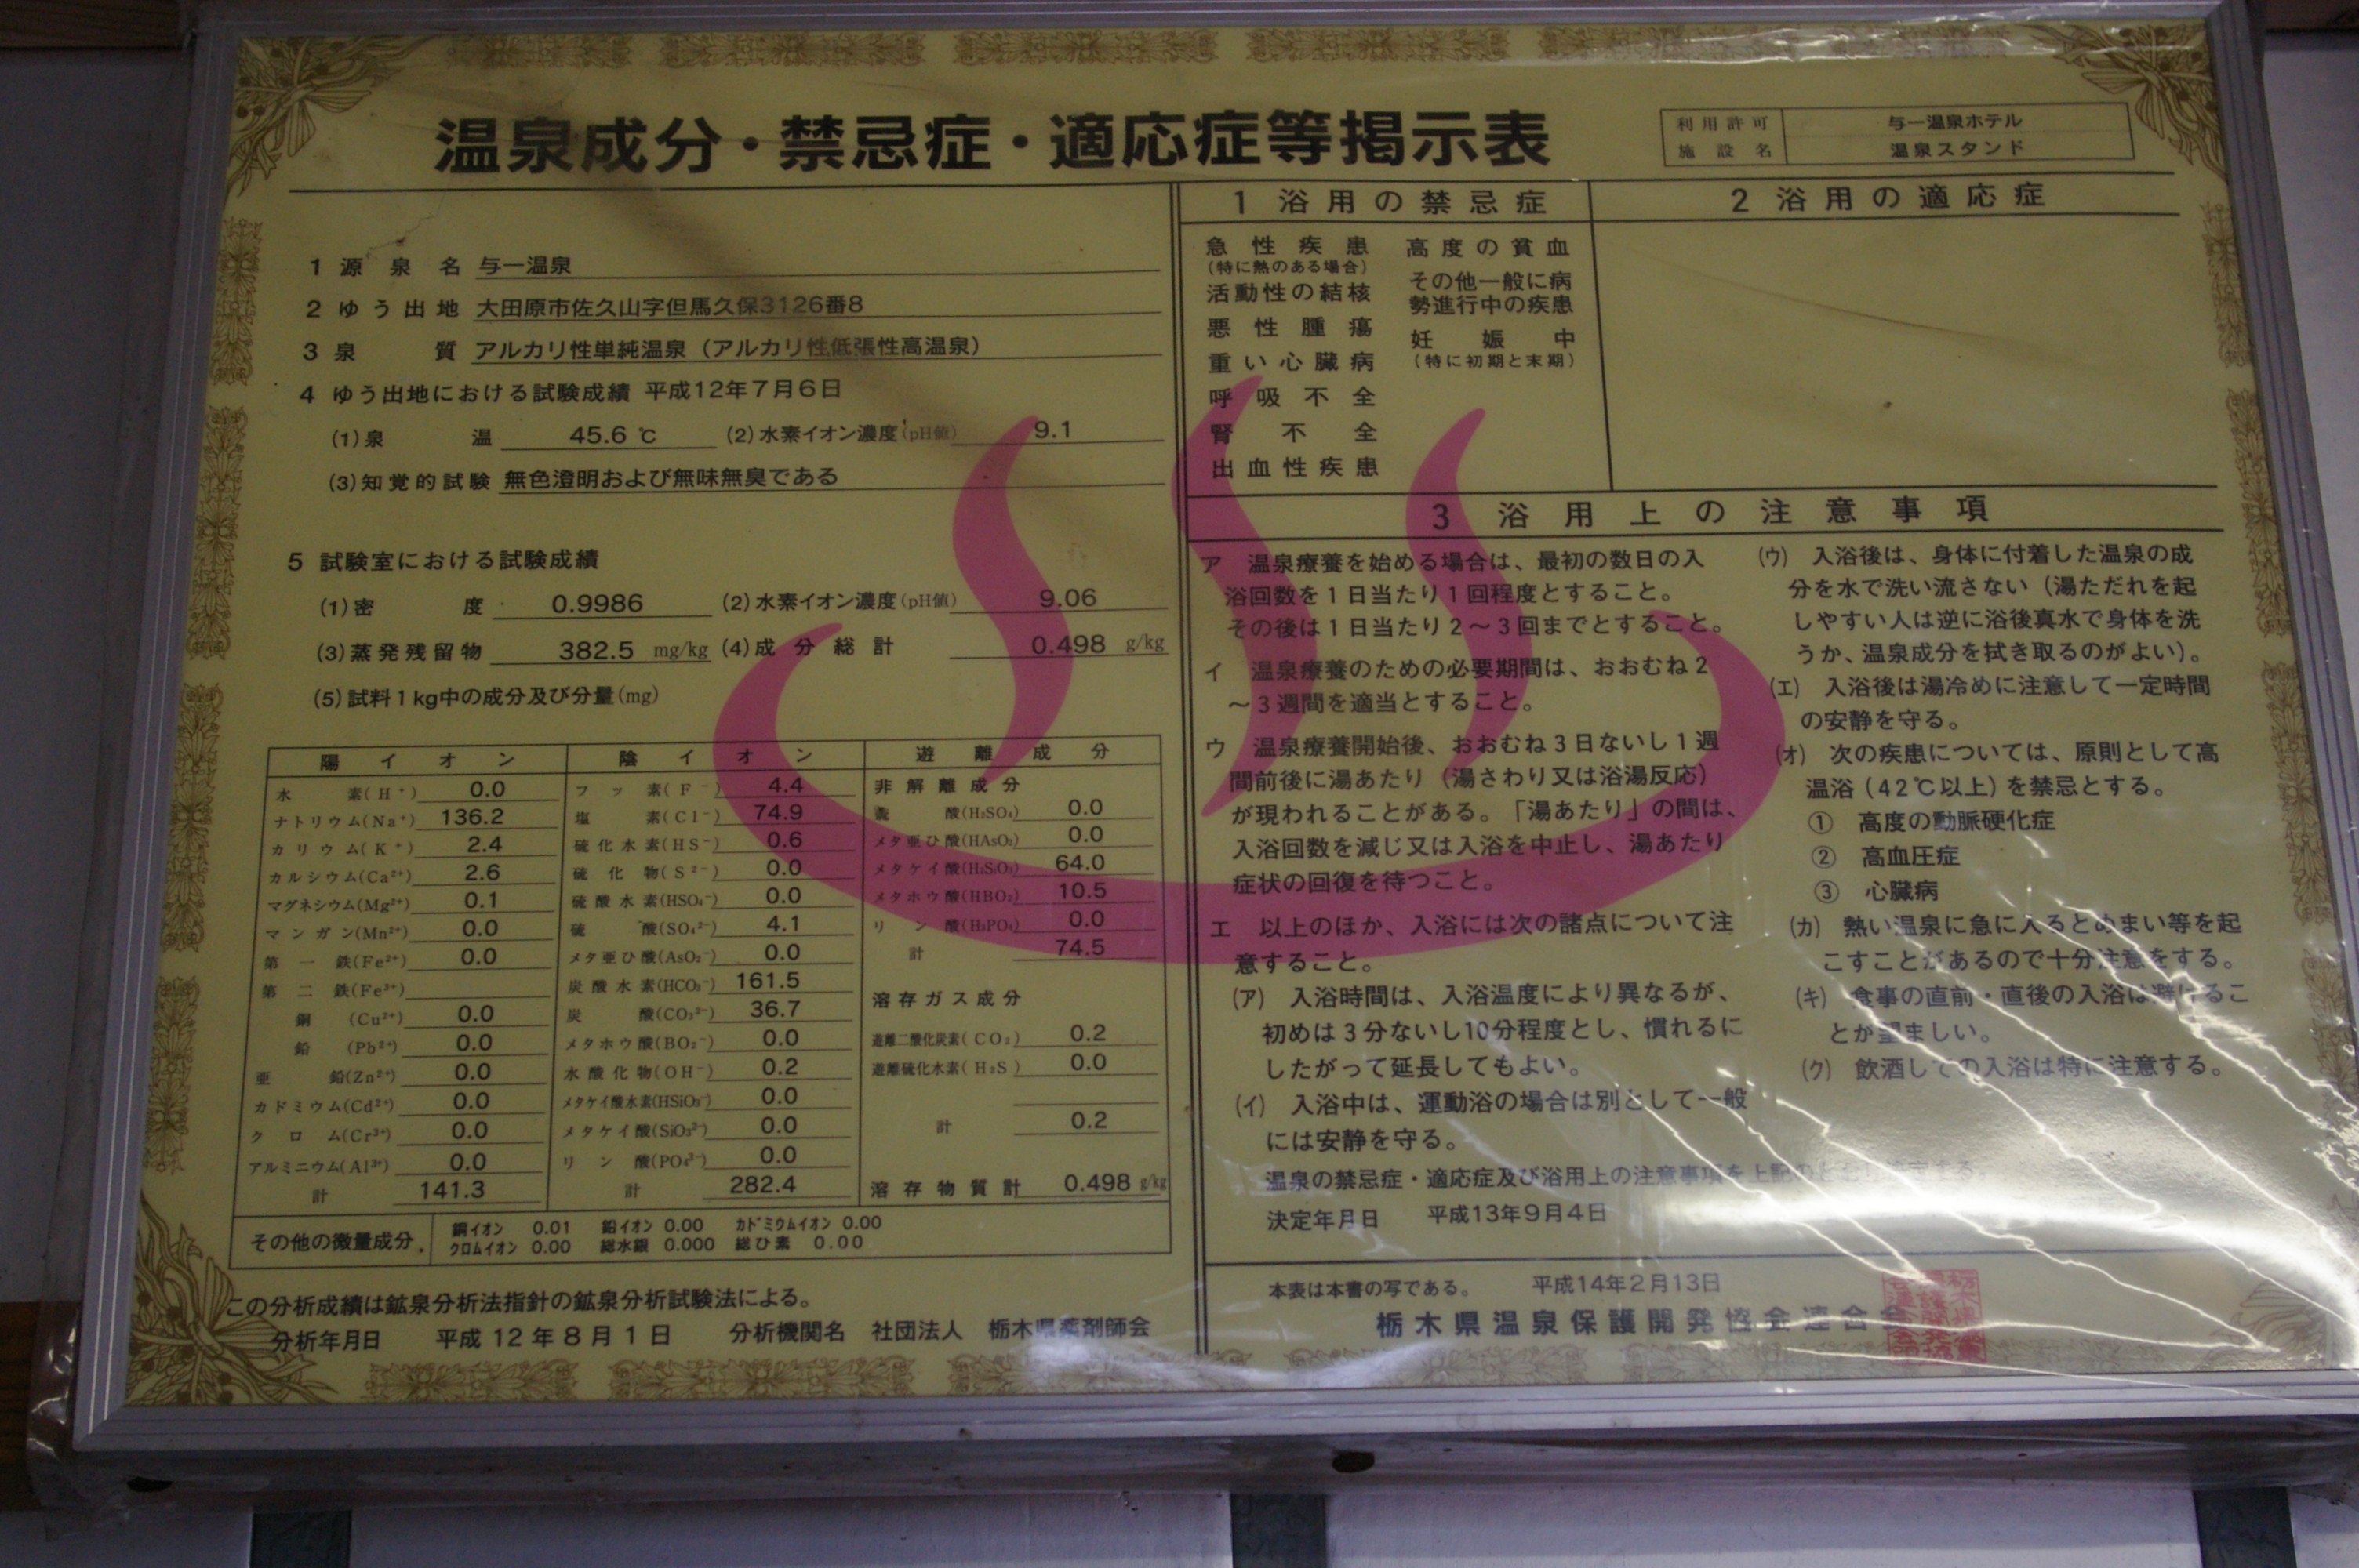 温泉成分・禁忌症・適応症等掲示表
利用許可
施設名
与一温泉ホテル
温泉スタンド
1 源泉名 与一温泉
2 ゆう出地 大田原市佐久山字但馬久保3126番8
3 泉質 アルカリ性単純温泉（アルカリ性低張性高温泉）
4 ゆう出地における試験成績 平成12年7月6日
(1)泉温 45.6 ℃ (2)水素イオン濃度(pH値) 9.1
(3)知覚的試験 無色澄明および無味無臭である
5 試験室における試験成績
(1)密度 0.9986 (2)水素イオン濃度(pH値) 9.06
(3)蒸発残留物 382.5 mg/kg (4)成分総計 0.498 g/kg
(5)試料1kg中の成分及び分量(mg)
陽イオン
水素(H⁺) 0.0
ナトリウム(Na⁺) 136.2
カリウム(K⁺) 2.4
カルシウム(Ca²⁺) 2.6
マグネシウム(Mg²⁺) 0.1
マンガン(Mn²⁺) 0.0
第一鉄(Fe²⁺) 0.0
第二鉄(Fe³⁺)
銅(Cu²⁺) 0.0
鉛(Pb²⁺) 0.0
亜鉛(Zn²⁺) 0.0
カドミウム(Cd²⁺) 0.0
クロム(Cr³⁺) 0.0
アルミニウム(Al³⁺) 0.0
計 141.3
陰イオン
フッ素(F⁻) 4.4
塩素(Cl⁻) 74.9
硫化水素(HS⁻) 0.6
硫化物(S²⁻) 0.0
硫酸水素(HSO₄⁻) 0.0
硫酸(SO₄²⁻) 4.1
メタ亜ひ酸(AsO₂⁻) 0.0
炭酸水素(HCO₃⁻) 161.5
炭酸(CO₃²⁻) 36.7
メタホウ酸(BO₂⁻) 0.0
水酸化物(OH⁻) 0.2
メタケイ酸水素(HSiO₃⁻) 0.0
メタケイ酸(SiO₃²⁻) 0.0
リン酸(PO₄³⁻) 0.0
計 282.4
遊離成分
非解離成分
硫酸(H₂SO₄) 0.0
メタ亜ひ酸(HAsO₂) 0.0
メタケイ酸(H₂SiO₃) 64.0
メタホウ酸(HBO₂) 10.5
リン酸(H₃PO₄) 0.0
計 74.5
溶存ガス成分
遊離二酸化炭素(CO₂) 0.2
遊離硫化水素(H₂S) 0.0
計 0.2
溶存物質計 0.498 g/kg
その他の微量成分
銅イオン 0.01 鉛イオン 0.00 カドミウムイオン 0.00
クロムイオン 0.00 総水銀 0.000 総ひ素 0.00
この分析成績は鉱泉分析法指針の鉱泉分析試験法による。
分析年月日 平成12年8月1日 分析機関名 社団法人 栃木県薬剤師会
1 浴用の禁忌症
急性疾患
(特に熱のある場合)
活動性の結核
悪性腫瘍
重い心臓病
呼吸不全
腎不全
出血性疾患
高度の貧血
その他一般に病
勢進行中の疾患
妊娠中
(特に初期と末期)
2 浴用の適応症
3 浴用上の注意事項
ア 温泉療養を始める場合は、最初の数日の入
浴回数を1日当たり1回程度とすること。
その後は1日当たり2～3回までとすること。
イ 温泉療養のための必要期間は、おおむね2
～3週間を適当とすること。
ウ 温泉療養開始後、おおむね3日ないし1週
間前後に湯あたり（湯さわり又は浴湯反応）
が現われることがある。「湯あたり」の間は、
入浴回数を減じ又は入浴を中止し、湯あたり
症状の回復を待つこと。
エ 以上のほか、入浴には次の諸点について注
意すること。
(ア) 入浴時間は、入浴温度により異なるが、
初めは3分ないし10分程度とし、慣れるに
したがって延長してもよい。
(イ) 入浴中は、運動浴の場合は別として一般
には安静を守る。
(ウ) 入浴後は、身体に付着した温泉の成
分を水で洗い流さない（湯ただれを起
しやすい人は逆に浴後真水で身体を洗
うか、温泉成分を拭き取るのがよい）。
(エ) 入浴後は湯冷めに注意して一定時間
の安静を守る。
(オ) 次の疾患については、原則として高
温浴（42℃以上）を禁忌とする。
① 高度の動脈硬化症
② 高血圧症
③ 心臓病
(カ) 熱い温泉に急に入るとめまい等を起
こすことがあるので十分注意をする。
(キ) 食事の直前・直後の入浴は避けるこ
とが望ましい。
(ク) 飲酒しての入浴は特に注意する。
温泉の禁忌症・適応症及び浴用上の注意事項を上記のとおり決定する。
決定年月日 平成13年9月4日
本表は本書の写である。 平成14年2月13日
栃木県温泉保護開発協会連合会